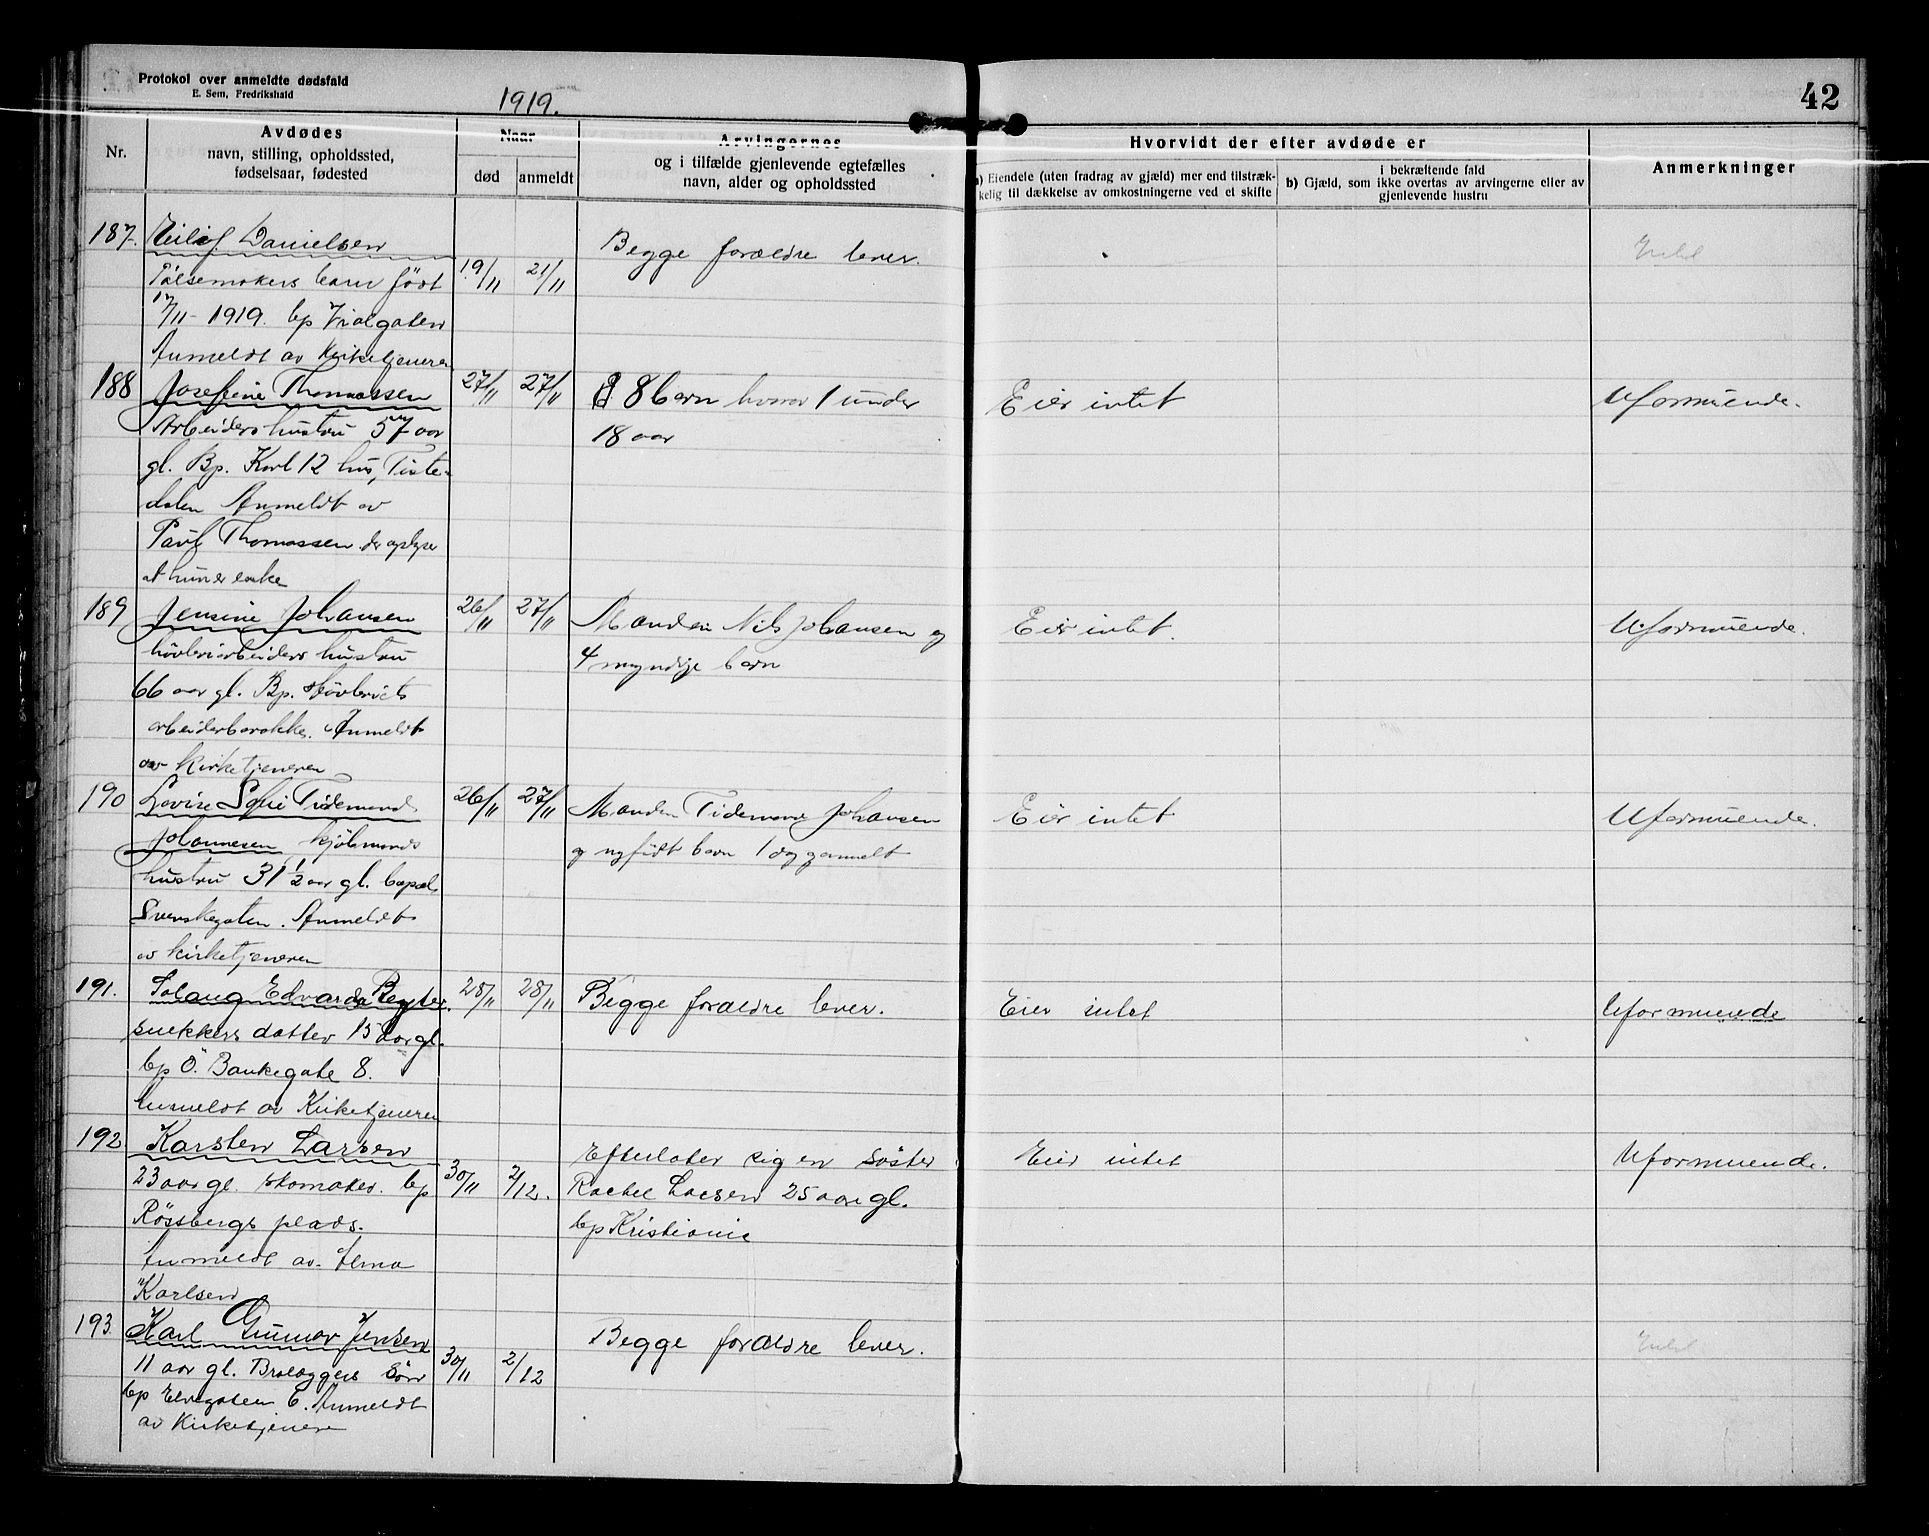 Protokol over anmeldte dødsfald
E. Sem, Fredrikshald
1919.
42
Nr.
Avdødes
navn, stilling, opholdssted,
fødselsaar, fødested
Naar
død
anmeldt
Arvingernes
og i tilfælde gjenlevende egtefælles
navn, alder og opholdssted
Hvorvidt der efter avdøde er
a) Eiendele (uten fradrag av gjæld) mer end tilstræk-
kelig til dækkelse av omkostningerne ved et skifte
i bekræftende fald
b) Gjæld, som ikke overtas av arvingerne eller av
gjenlevende hustru
Anmerkninger
187. Eilif Danielsen
Pølsemakers barn født
17/11-1919. bp
Anmeldt av Kirketjeneren
19/11 21/11
Begge forældre lever.
188 Josefine Thomassen
Arbeiders hustru 57 aar
gl. Bp. Karl 12 hus, Tiste-
dalen Anmeldt av
Paul Thomassen der oplyser
at hun er enke
27/11 27/11
8 barn hvorav 1 under
18 aar
Eier intet
Uformuende.
189 Jensine Johansen
høvleriarbeiders hustru
66 aar gl. Bp. Høvleriets
arbeiderbarakke. Anmeldt
av kirketjeneren
26/11 27/11
Manden Nils Johansen og
4 myndige barn
Eier intet.
Uformuende.
190 Lovise Sofie Tidemand
Johannesen kjølmands
hustru 31 1/2 aar gl. bopæl
Svenskegaten. Anmeldt
av kirketjeneren
26/11 27/11
Manden Tidemand Johansen
og nyfødt barn 1 dag gammelt
Eier intet
Uformuende.
191. Solaug Edvarda
snekkers datter 15 aar gl.
bp Ö. Bankegate 8.
Anmeldt av Kirketjeneren
28/11 28/11
Begge forældre lever.
Eier intet
Uformuende
192. Karsten Larsen
23 aar gl. skomaker. bp
Røssbergs plads.
Anmeldt av
Karlsen
30/11 2/12.
Efterlater sig en søster
Rachel Larsen 25 aar gl.
bp Kristiania
Eier intet
Uformuende.
193. Karl Gunnar Jensen
11 aar gl. Brolæggers sønn
bp Elvegaten 6. Anmeldt
av Kirketjenere
30/11 2/12
Begge forældre lever.